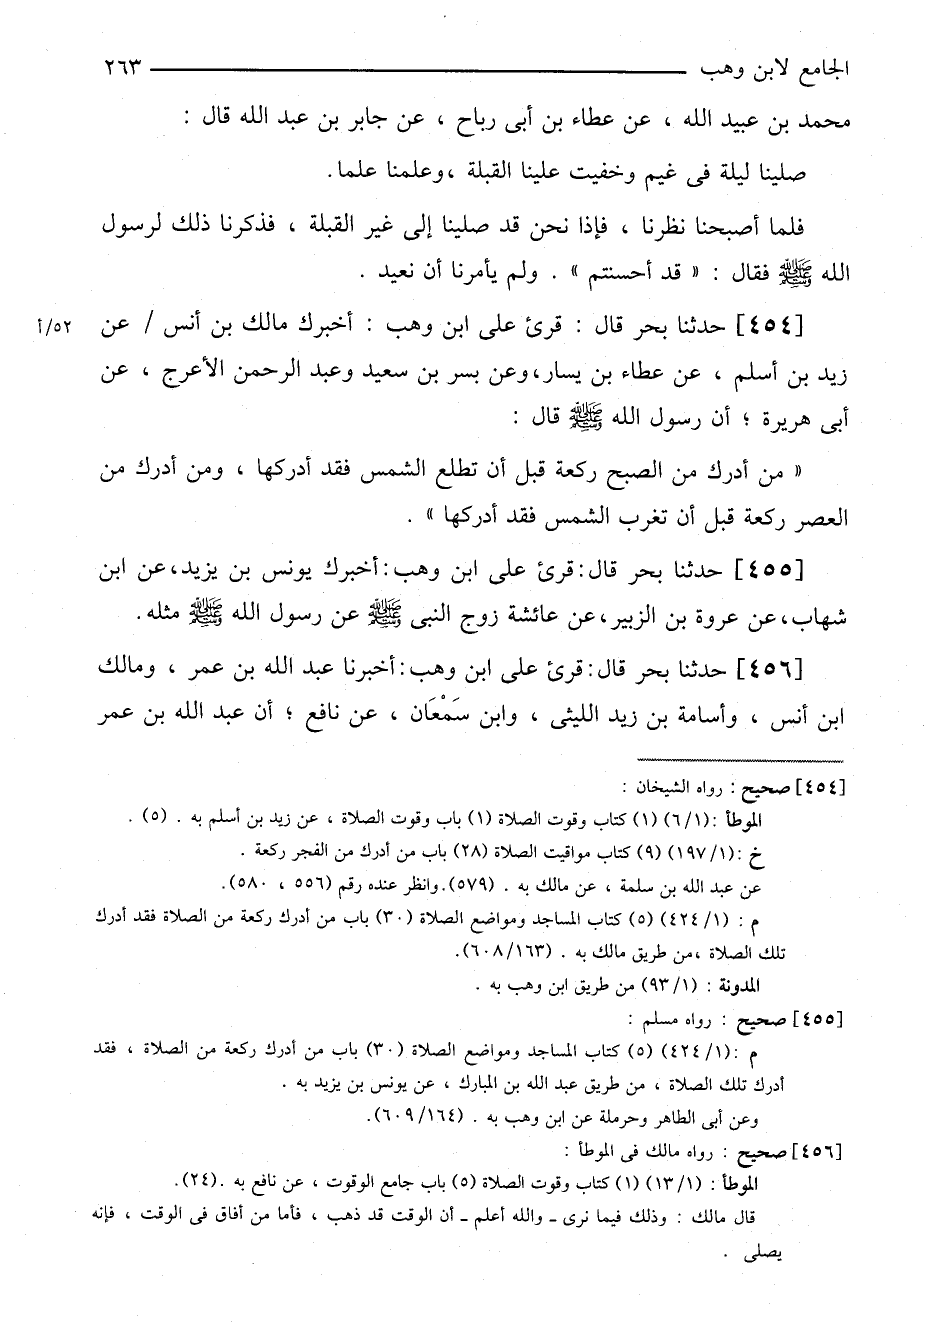 الجامع لابن وهب ٢٦٣
محمد بن عبيد الله ، عن عطاء بن أبى رباح ، عن جابر بن عبد الله قال :
صلينا ليلة فى غيم وخفيت علينا القبلة ،وعلمنا علما.
فلما أصبحنا نظرنا ، فإذا نحن قد صلينا إلى غير القبلة ، فذكرنا ذلك لرسول
الله ﷺ فقال : « قد أحسنتم » . ولم يأمرنا أن نعيد .
[٤٥٤] حدثنا بحر قال : قرئ على ابن وهب : أخبرك مالك بن أنس / عن ٥٢/أ
زيد بن أسلم ، عن عطاء بن يسار،وعن بسر بن سعيد وعبد الرحمن الأعرج ، عن
أبى هريرة ؛ أن رسول الله ﷺ قال :
« من أدرك من الصبح ركعة قبل أن تطلع الشمس فقد أدركها ، ومن أدرك من
العصر ركعة قبل أن تغرب الشمس فقد أدركها » .
[٤٥٥] حدثنا بحر قال:قرئ على ابن وهب:أخبرك يونس بن يزيد،عن ابن
شهاب،عن عروة بن الزبير،عن عائشة زوج النبى ﷺ عن رسول الله ﷺ مثله.
[٤٥٦] حدثنا بحر قال:قرئ على ابن وهب:أخبرنا عبد الله بن عمر ، ومالك
ابن أنس ، وأسامة بن زيد الليثى ، وابن سَمْعَان ، عن نافع ؛ أن عبد الله بن عمر
[٤٥٤] صحيح : رواه الشيخان :
الموطأ :(٦/١) (١) كتاب وقوت الصلاة (١) باب وقوت الصلاة ، عن زيد بن أسلم به . (٥) .
خ :(١٩٧/١) (٩) كتاب مواقيت الصلاة (٢٨) باب من أدرك من الفجر ركعة .
عن عبد الله بن سلمة ، عن مالك به . (٥٧٩).وانظر عنده رقم (٥٥٦ ، ٥٨٠).
م : (٤٢٤/١) (٥) كتاب المساجد ومواضع الصلاة (٣٠) باب من أدرك ركعة من الصلاة فقد أدرك
تلك الصلاة ،من طريق مالك به . (٦٠٨/١٦٣).
المدونة : (٩٣/١) من طريق ابن وهب به .
[٤٥٥] صحيح : رواه مسلم :
م :(٤٢٤/١) (٥) كتاب المساجد ومواضع الصلاة (٣٠) باب من أدرك ركعة من الصلاة ، فقد
أدرك تلك الصلاة ، من طريق عبد الله بن المبارك ، عن يونس بن يزيد به .
وعن أبى الطاهر وحرملة عن ابن وهب به . (٦٠٩/١٦٤).
[٤٥٦] صحيح : رواه مالك فى الموطأ :
الموطأ : (١٣/١) (١) كتاب وقوت الصلاة (٥) باب جامع الوقوت ، عن نافع به .(٢٤).
قال مالك : وذلك فيما نرى ـ والله أعلم ـ أن الوقت قد ذهب ، فأما من أفاق فى الوقت ، فإنه
يصلى .